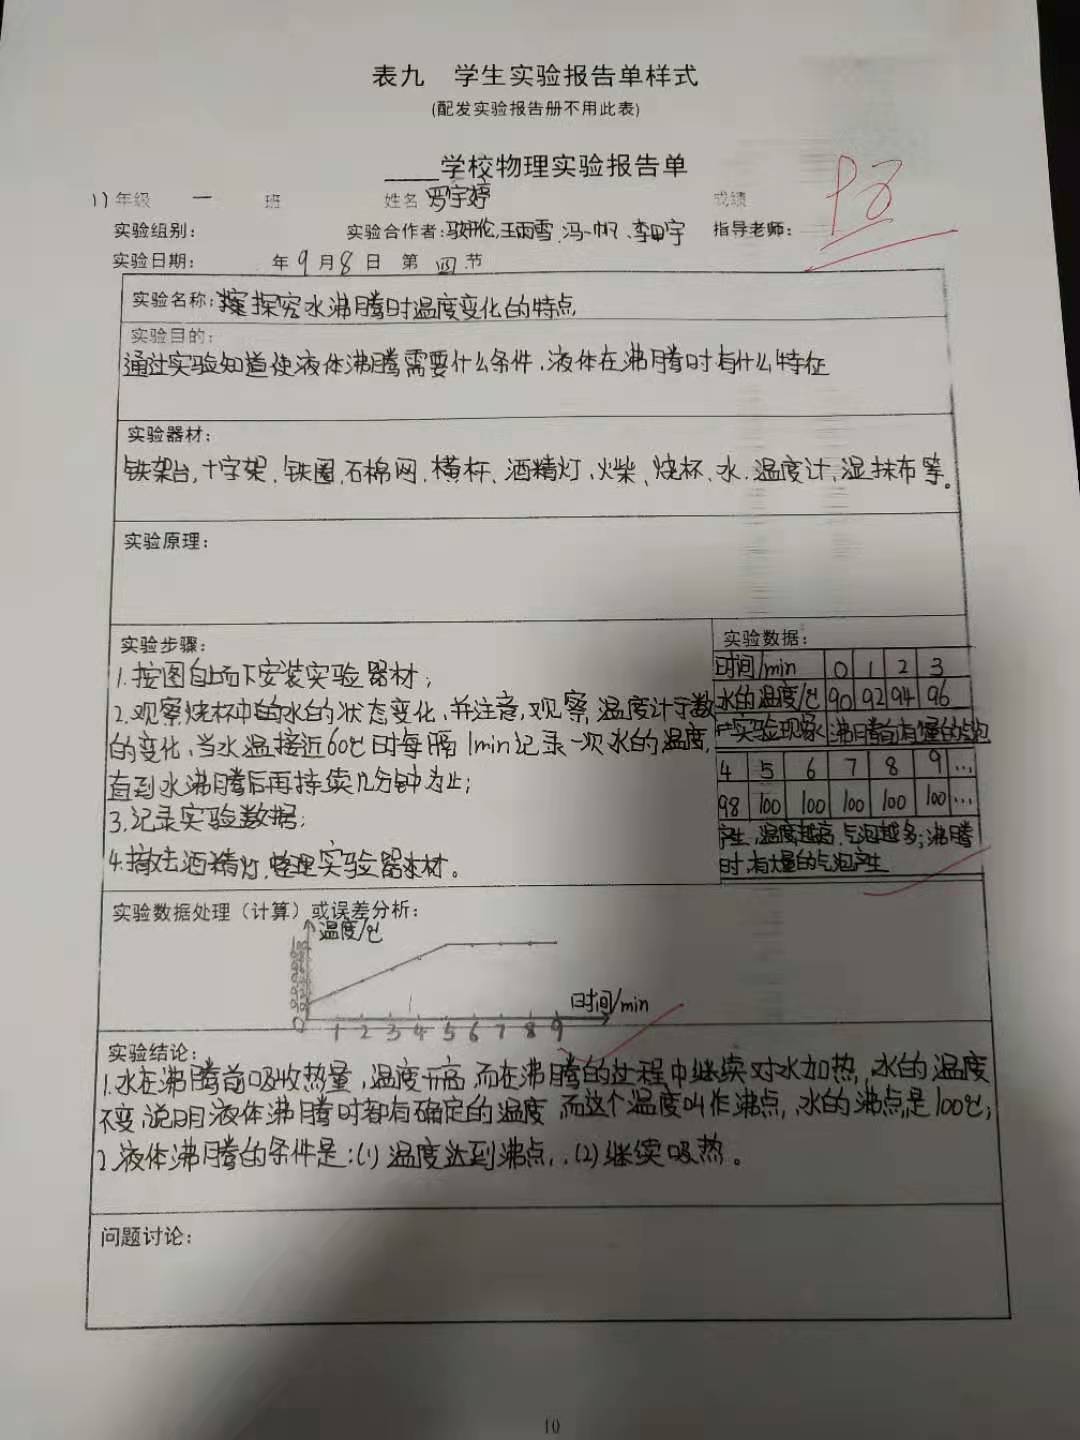 表九 学生实验报告单样式
(配发实验报告册不用此表)
____学校物理实验报告单
年级 一 班 姓名 罗宇婷 成绩
实验组别: 实验合作者: 王雨雪 冯一帆、李 宇 指导老师:
实验日期: 年 9 月 8 日 第 四 节
实验名称: 探究水沸腾时温度变化的特点
实验目的:
通过实验知道使液体沸腾需要什么条件,液体在沸腾时有什么特征
实验器材:
铁架台,十字架、铁圈、石棉网、横杆、酒精灯、火柴、烧杯、水、温度计,湿抹布等。
实验原理:
实验步骤:
1.按图自上而下安装实验器材;
2.观察烧杯中的水的状态变化,并注意,观察,温度计示数
的变化,当水温接近60℃时每隔1min记录一次水的温度,
直到水沸腾后再持续几分钟为止;
3.记录实验数据;
4.撤去酒精灯,整理实验器材。
实验数据:
时间/min 0 1 2 3
水的温度/℃ 90 92 94 96
实验现象 沸腾前有 的气泡
4 5 6 7 8 9 …
98 100 100 100 100 100 …
产生,温度越高,气泡越多;沸腾
时,有大量的气泡产生
实验数据处理(计算)或误差分析:
温度/℃
100
98
96
94
92
90
时间/min
0 1 2 3 4 5 6 7 8 9
实验结论:
1.水在沸腾前吸收热量,温度升高,而在沸腾的过程中继续对水加热,水的温度
不变,说明液体沸腾时都有确定的温度,而这个温度叫作沸点,水的沸点是100℃;
2.液体沸腾的条件是:(1)温度达到沸点,(2)继续吸热。
问题讨论:
10